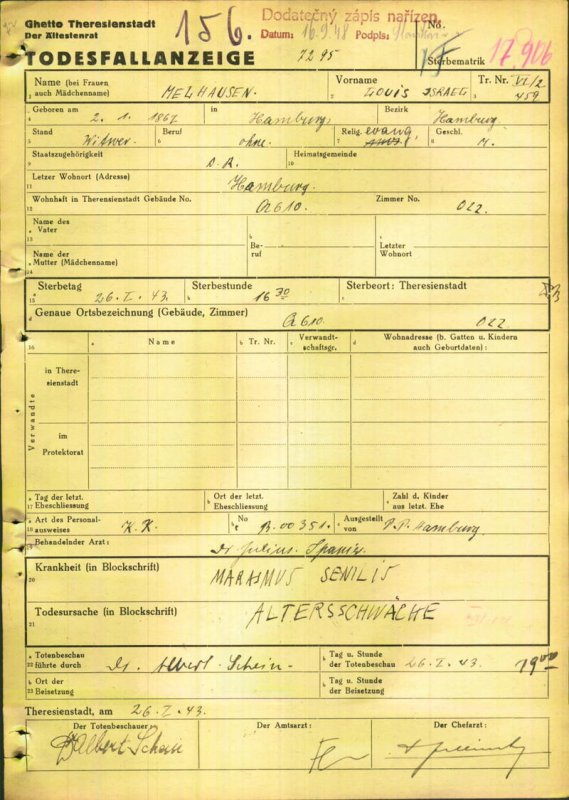 Ghetto Theresienstadt
Der Ältestenrat
156.
Dodatečný zápis nařízen.
Datum: 16.9.48 Podpis:
No.
TODESFALLANZEIGE 7295
Sterbematrik 17.906
Name (bei Frauen auch Mädchenname) MELHAUSEN. Vorname LOUIS ISRAEL Tr. Nr. VI/2 459
Geboren am 2. 1. 1867 in Hamburg Bezirk Hamburg
Stand Witwer. Beruf ohne. Relig. evang. Geschl. M.
Staatszugehörigkeit D.R. Heimatsgemeinde
Letzer Wohnort (Adresse) Hamburg.
Wohnhaft in Theresienstadt Gebäude No. Q610. Zimmer No. 022.
Name des Vater Beruf Letzter Wohnort
Name der Mutter (Mädchenname)
Sterbetag 26.I.43. Sterbestunde 16 30 Sterbeort: Theresienstadt
Genaue Ortsbezeichnung (Gebäude, Zimmer) Q610. 022
Name Tr. Nr. Verwandtschaftsgr. Wohnadresse (b. Gatten u. Kindern auch Geburtdaten):
Verwandte
in Theresienstadt
im Protektorat
Tag der letzt. Eheschliessung Ort der letzt. Eheschliessung Zahl d. Kinder aus letzt. Ehe
Art des Personalausweises K.K. No B.00351. Ausgestellt von P.P. Hamburg.
Behandelnder Arzt: Dr Julius Spanier
Krankheit (in Blockschrift) MARASMUS SENILIS
Todesursache (in Blockschrift) ALTERSSCHWÄCHE
Totenbeschau führte durch Dr. Albert Schein Tag u. Stunde der Totenbeschau 26.I.43. 19 00
Ort der Beisetzung Tag u. Stunde der Beisetzung
Theresienstadt, am 26.I.43.
Der Totenbeschauer: Der Amtsarzt: Der Chefarzt: